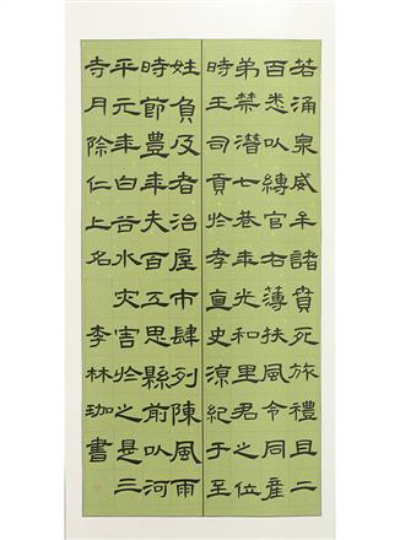 若涌泉威牟諸賁死旅禮且二
百悉以縛官右薄扶風令同產
弟禁潛七巷年光和里君之位
時王司貢於孝宣史涼紀于至
姓負及者治屋市肆列陳風雨
時節豐年夫百工思縣前以河
平元年白谷水灾害於之是三
寺月除仁上名 李林珈書